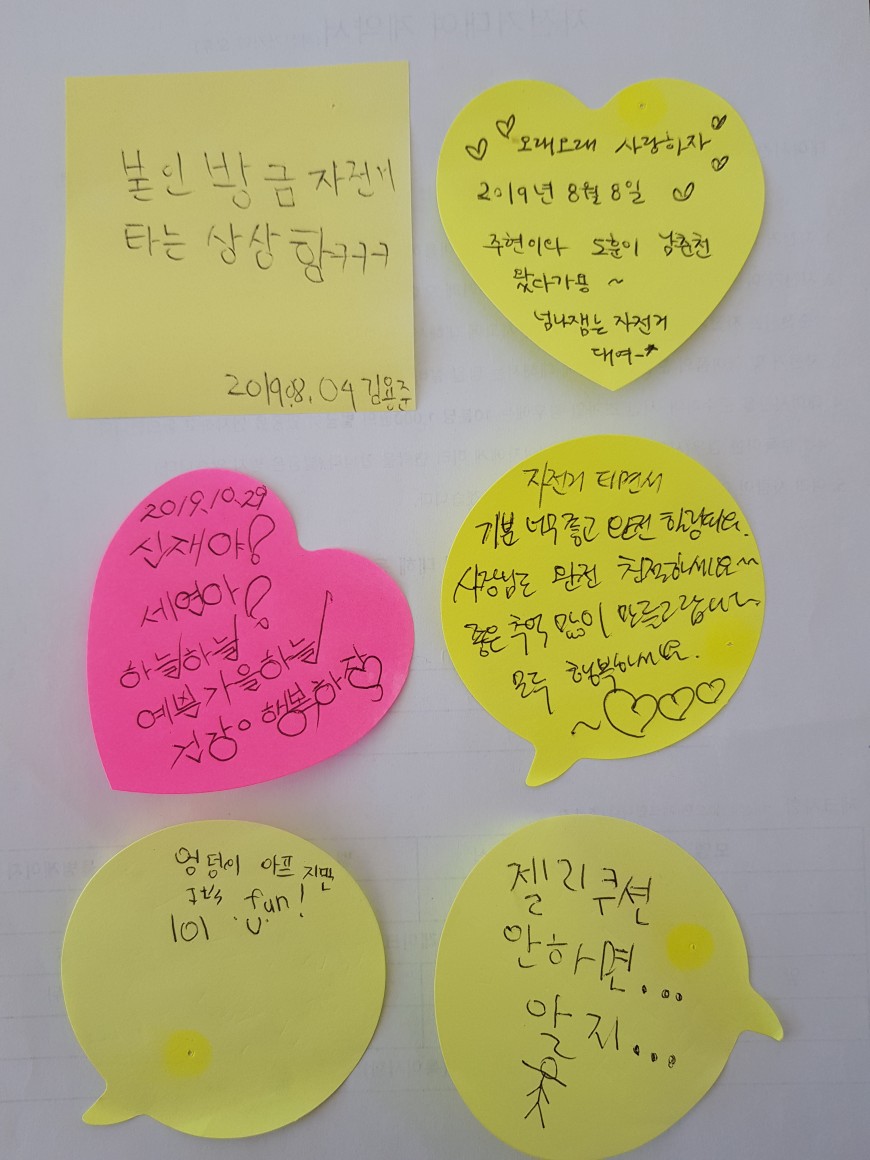 본인 방금 자전거
타는 상상함ㅋㅋㅋ
2019.08.04 김용준
오래오래 사랑하자
2019년 8월 8일
주현이랑 도훈이 남춘천
왔다가용 ~
넘나잼는 자전거
대여~*
2019.10.29
신재야?
세연아?
하늘하늘
예쁜 가을하늘
건강이 행복하자
자전거 타면서
기분 너무 좋고 완전 하랑띠요.
사장님도 완전 친절하세요~~
좋은 추억 많이 만들고갑니다.
모두 행복하세요.
~♡♡♡
엉덩이 아프지만
fun!
젤리쿠션
안하면...
알지...